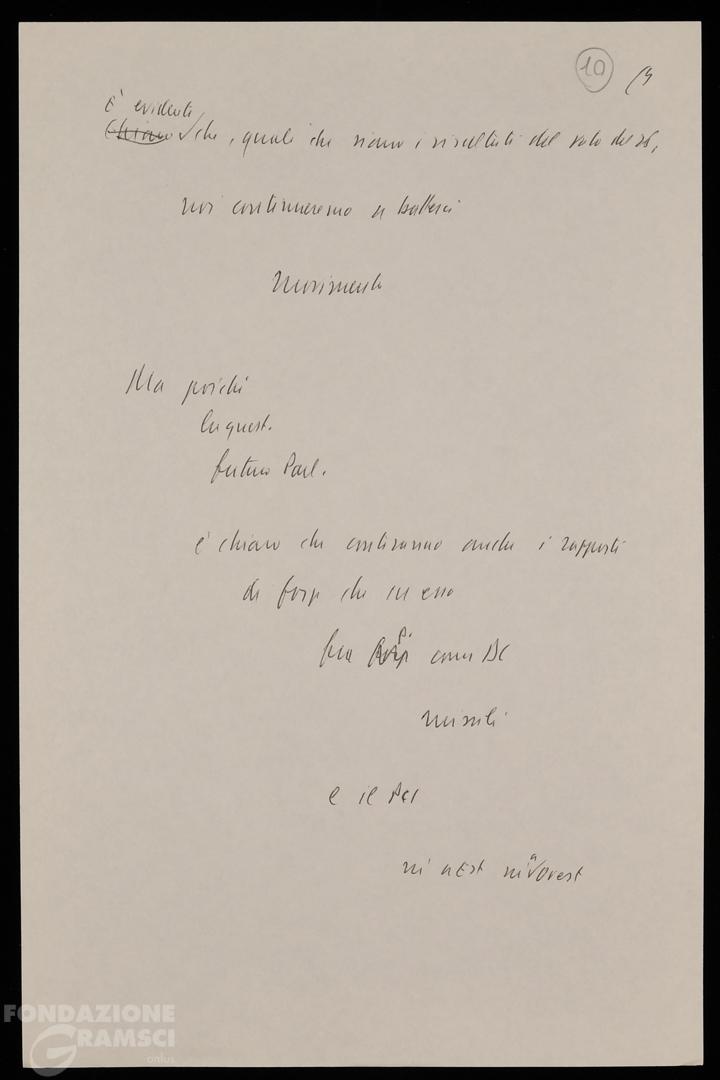 10
È evidente
Chiaro che, quali che siano i risultati del voto del 26,
noi continueremo a batterci
Movimento
Ma poiché
la quest.
futuro Parl.
è chiaro che conteranno anche i rapporti
di forza che in esso
fra P. come DC
missili
e il PCI
né a Est né a Ovest
FONDAZIONE
GRAMSCI
onlus